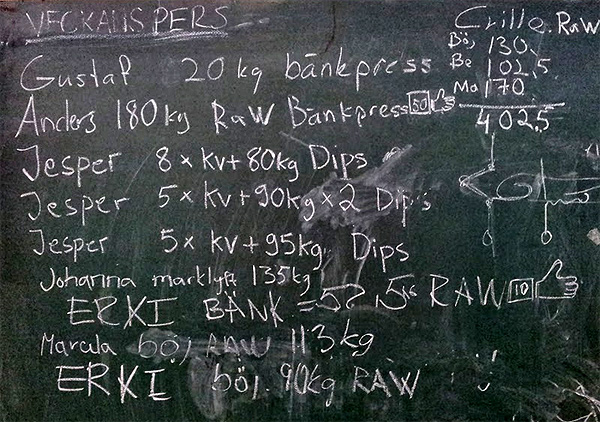 VECKANS PERS
Gustaf 20 kg bänkpress
Anders 180kg RAW Bänkpress 50
Jesper 8 x kv + 80kg Dips
Jesper 5 x kv + 90kg x 2 Dips
Jesper 5 x kv + 95kg Dips
Johanna marklyft 135kg
ERKI BÄNK = 57,5k RAW 10
Marcula böj RAW 113kg
ERKI böj. 90kg RAW
Crille. RAW
Böj 130.
Be 102,5
Ma 170.
402,5